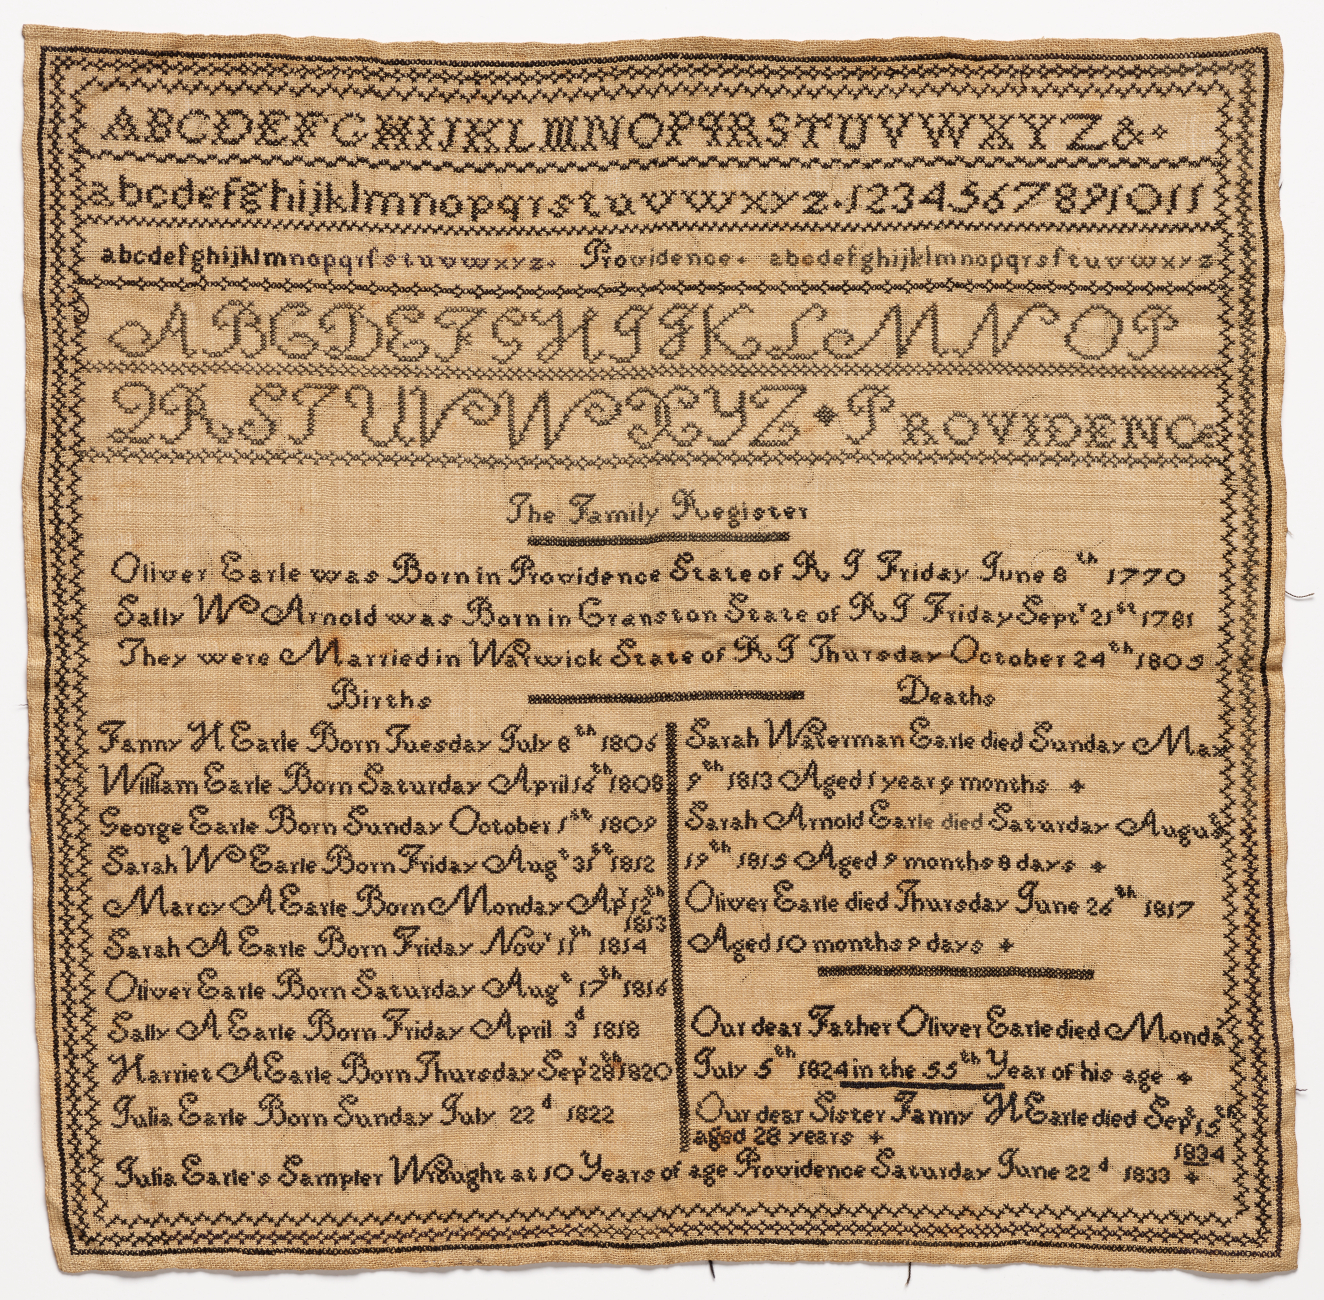 ABCDEFGHIJKLMNOPQRSTUVWXYZ&
abcdefghijklmnopqrstuvwxyz.1234567891011
abcdefghijklmnopqrsſstuvwxyz. Providence. abcdefghijklmnopqrsſtuvwxyz
ABCDEFGHIJKLMNOP
QRSTUVWXYZ PROVIDENCE
The Family Register
Oliver Earle was Born in Providence State of R I Friday June 8th 1770
Sally W Arnold was Born in Cranston State of R I Friday Septr 21st 1781
They were Married in Warwick State of R I Thursday October 24th 1805
Births Deaths
Fanny H Earle Born Tuesday July 8th 1806
William Earle Born Saturday April 16th 1808
George Earle Born Sunday October 1st 1809
Sarah W Earle Born Friday Augt 31st 1812
Marcy A Earle Born Monday Apr 12th 1813
Sarah A Earle Born Friday Novr 11th 1814
Oliver Earle Born Saturday Augt 17th 1816
Sally A Earle Born Friday April 3d 1818
Harriet A Earle Born Thursday Sepr 28th 1820
Julia Earle Born Sunday July 22d 1822
Sarah Waterman Earle died Sunday May
9th 1813 Aged 1 year 9 months
Sarah Arnold Earle died Saturday August
19th 1815 Aged 9 months 8 days
Oliver Earle died Thursday June 26th 1817
Aged 10 months 9 days
Our dear Father Oliver Earle died Monday
July 5th 1824 in the 55th Year of his age
Our dear Sister Fanny H Earle died Sept 15th
aged 28 years 1834
Julia Earle's Sampler Wrought at 10 Years of age Providence Saturday June 22d 1833